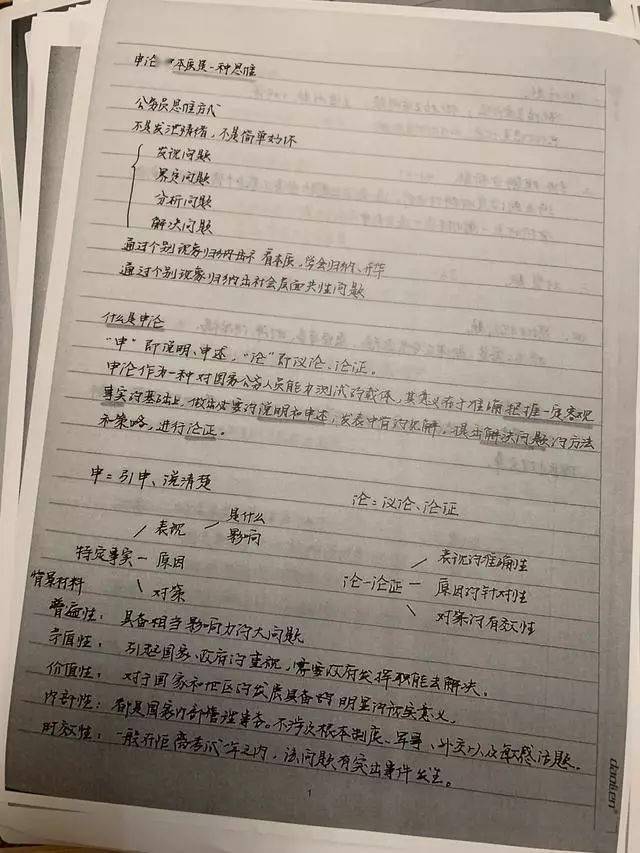 申论 本质是一种思维
公务员思维方式
不是发泄情绪,不是简单好坏
发现问题
界定问题
分析问题
解决问题
通过个别现象归纳 本质,学会归纳、升华
通过个别现象归纳出社会层面共性问题
什么是申论
“申”即说明、申述,“论”即议论、论证。
申论作为一种对国家公务人员能力测试的载体,其意义在于准确把握一定客观
事实的基础上,做出必要的说明和申述,发表中肯的见解,提出解决问题的方法
和策略,进行论证。
申=引申、说清楚 论=议论、论证
是什么
表现 影响 表现的准确性
特定事实 原因 论-论证 原因的针对性
背景材料 对策 对策的有效性
普遍性:具备相当影响力的大问题
矛盾性:引起国家、政府的重视,需要政府发挥职能去解决。
价值性:对于国家和地区的发展具备 明显的现实意义。
内部性:都是国家内部管理事务。不涉及根本制度、军事、外交以及敏感话题。
时效性:一般在距离考试一年之内,该问题有突出事件发生。
1